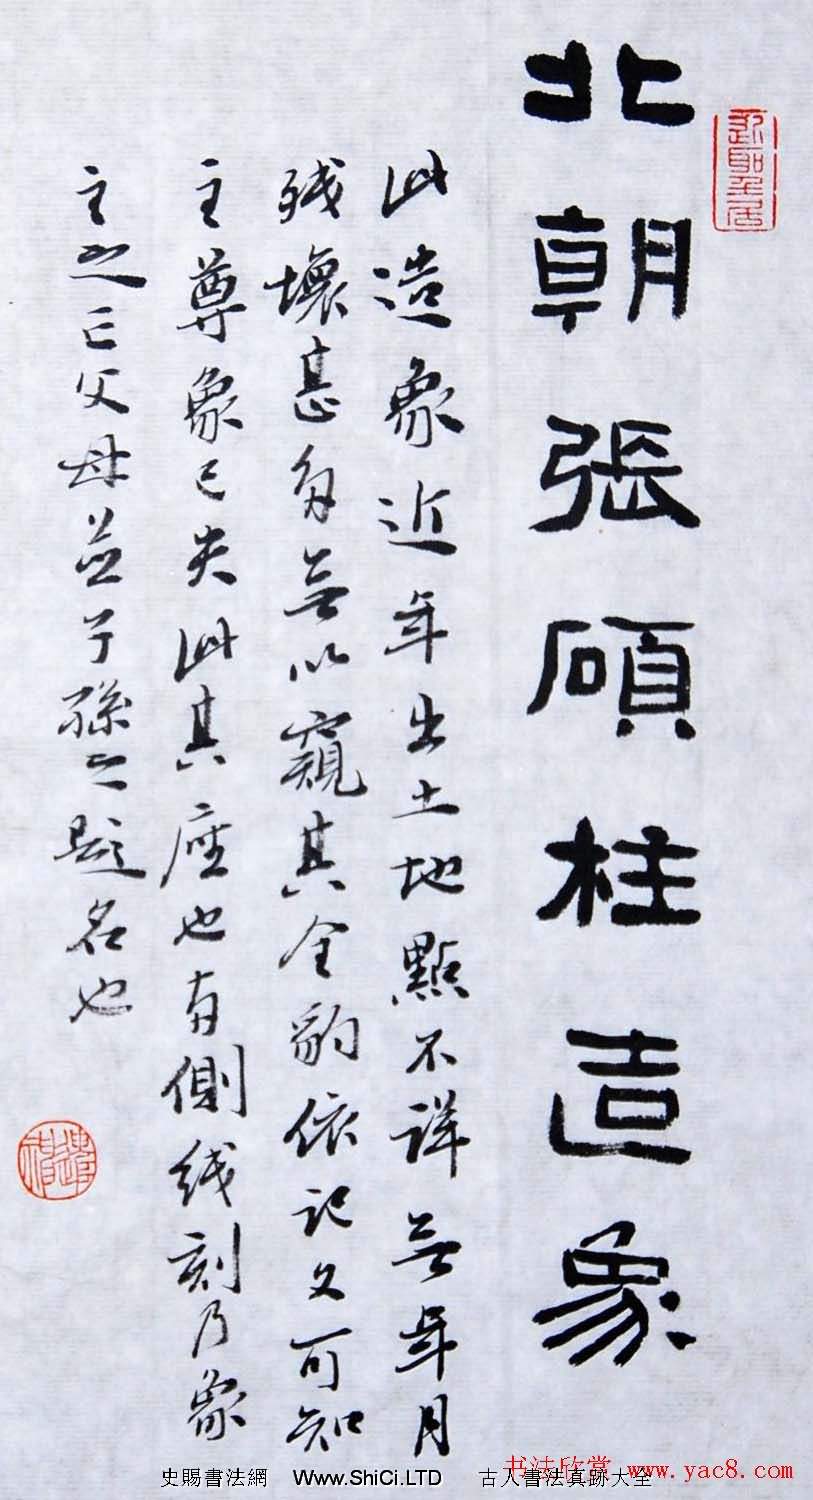 北朝張碩柱造象
此造象近年出土地點不詳無年月
殘壞甚多無以窺其全豹依記文可知
主尊象已失此其座也右側线刻乃象
主之亡父母並子孫之題名也
书法欣赏 www.yac8.com
史賜書法網 Www.ShiCi.LTD 古人書法真跡大全